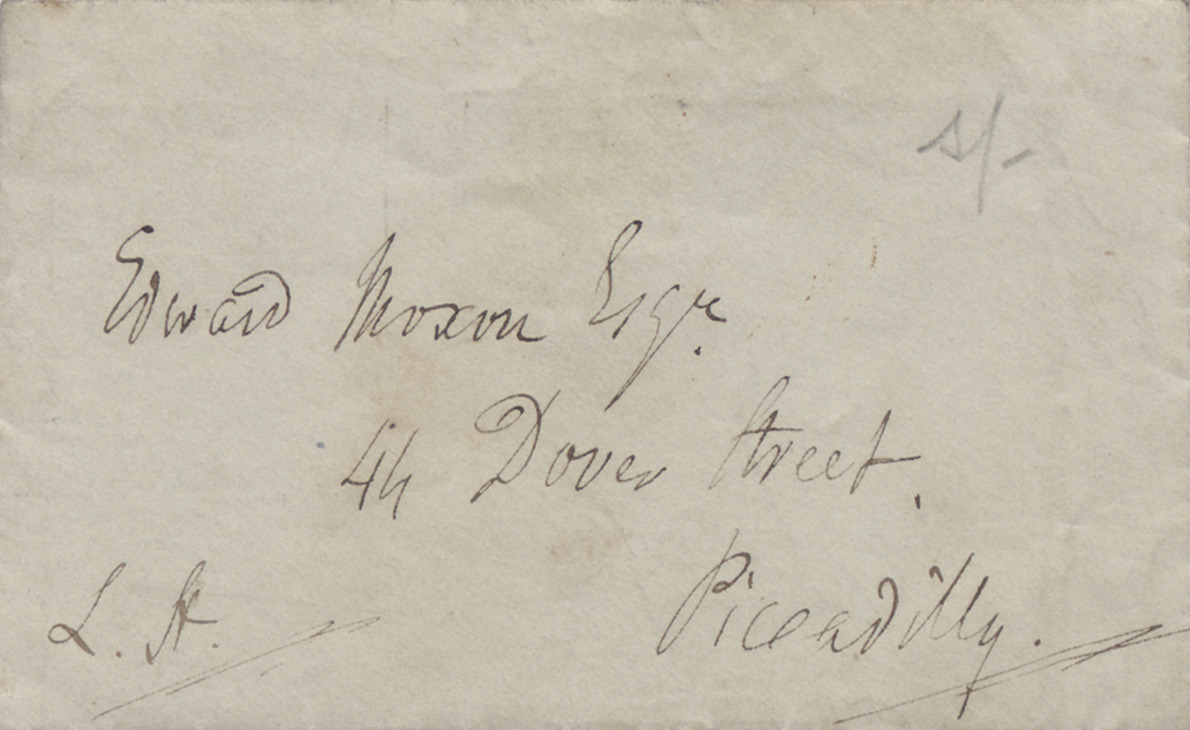 Edward Moxon Esqr.
44 Dover Street.
Piccadilly.